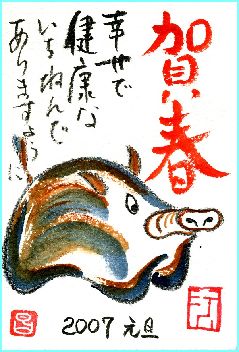 賀春
幸せで
健康な
いちねんで
ありますように
2007 元旦